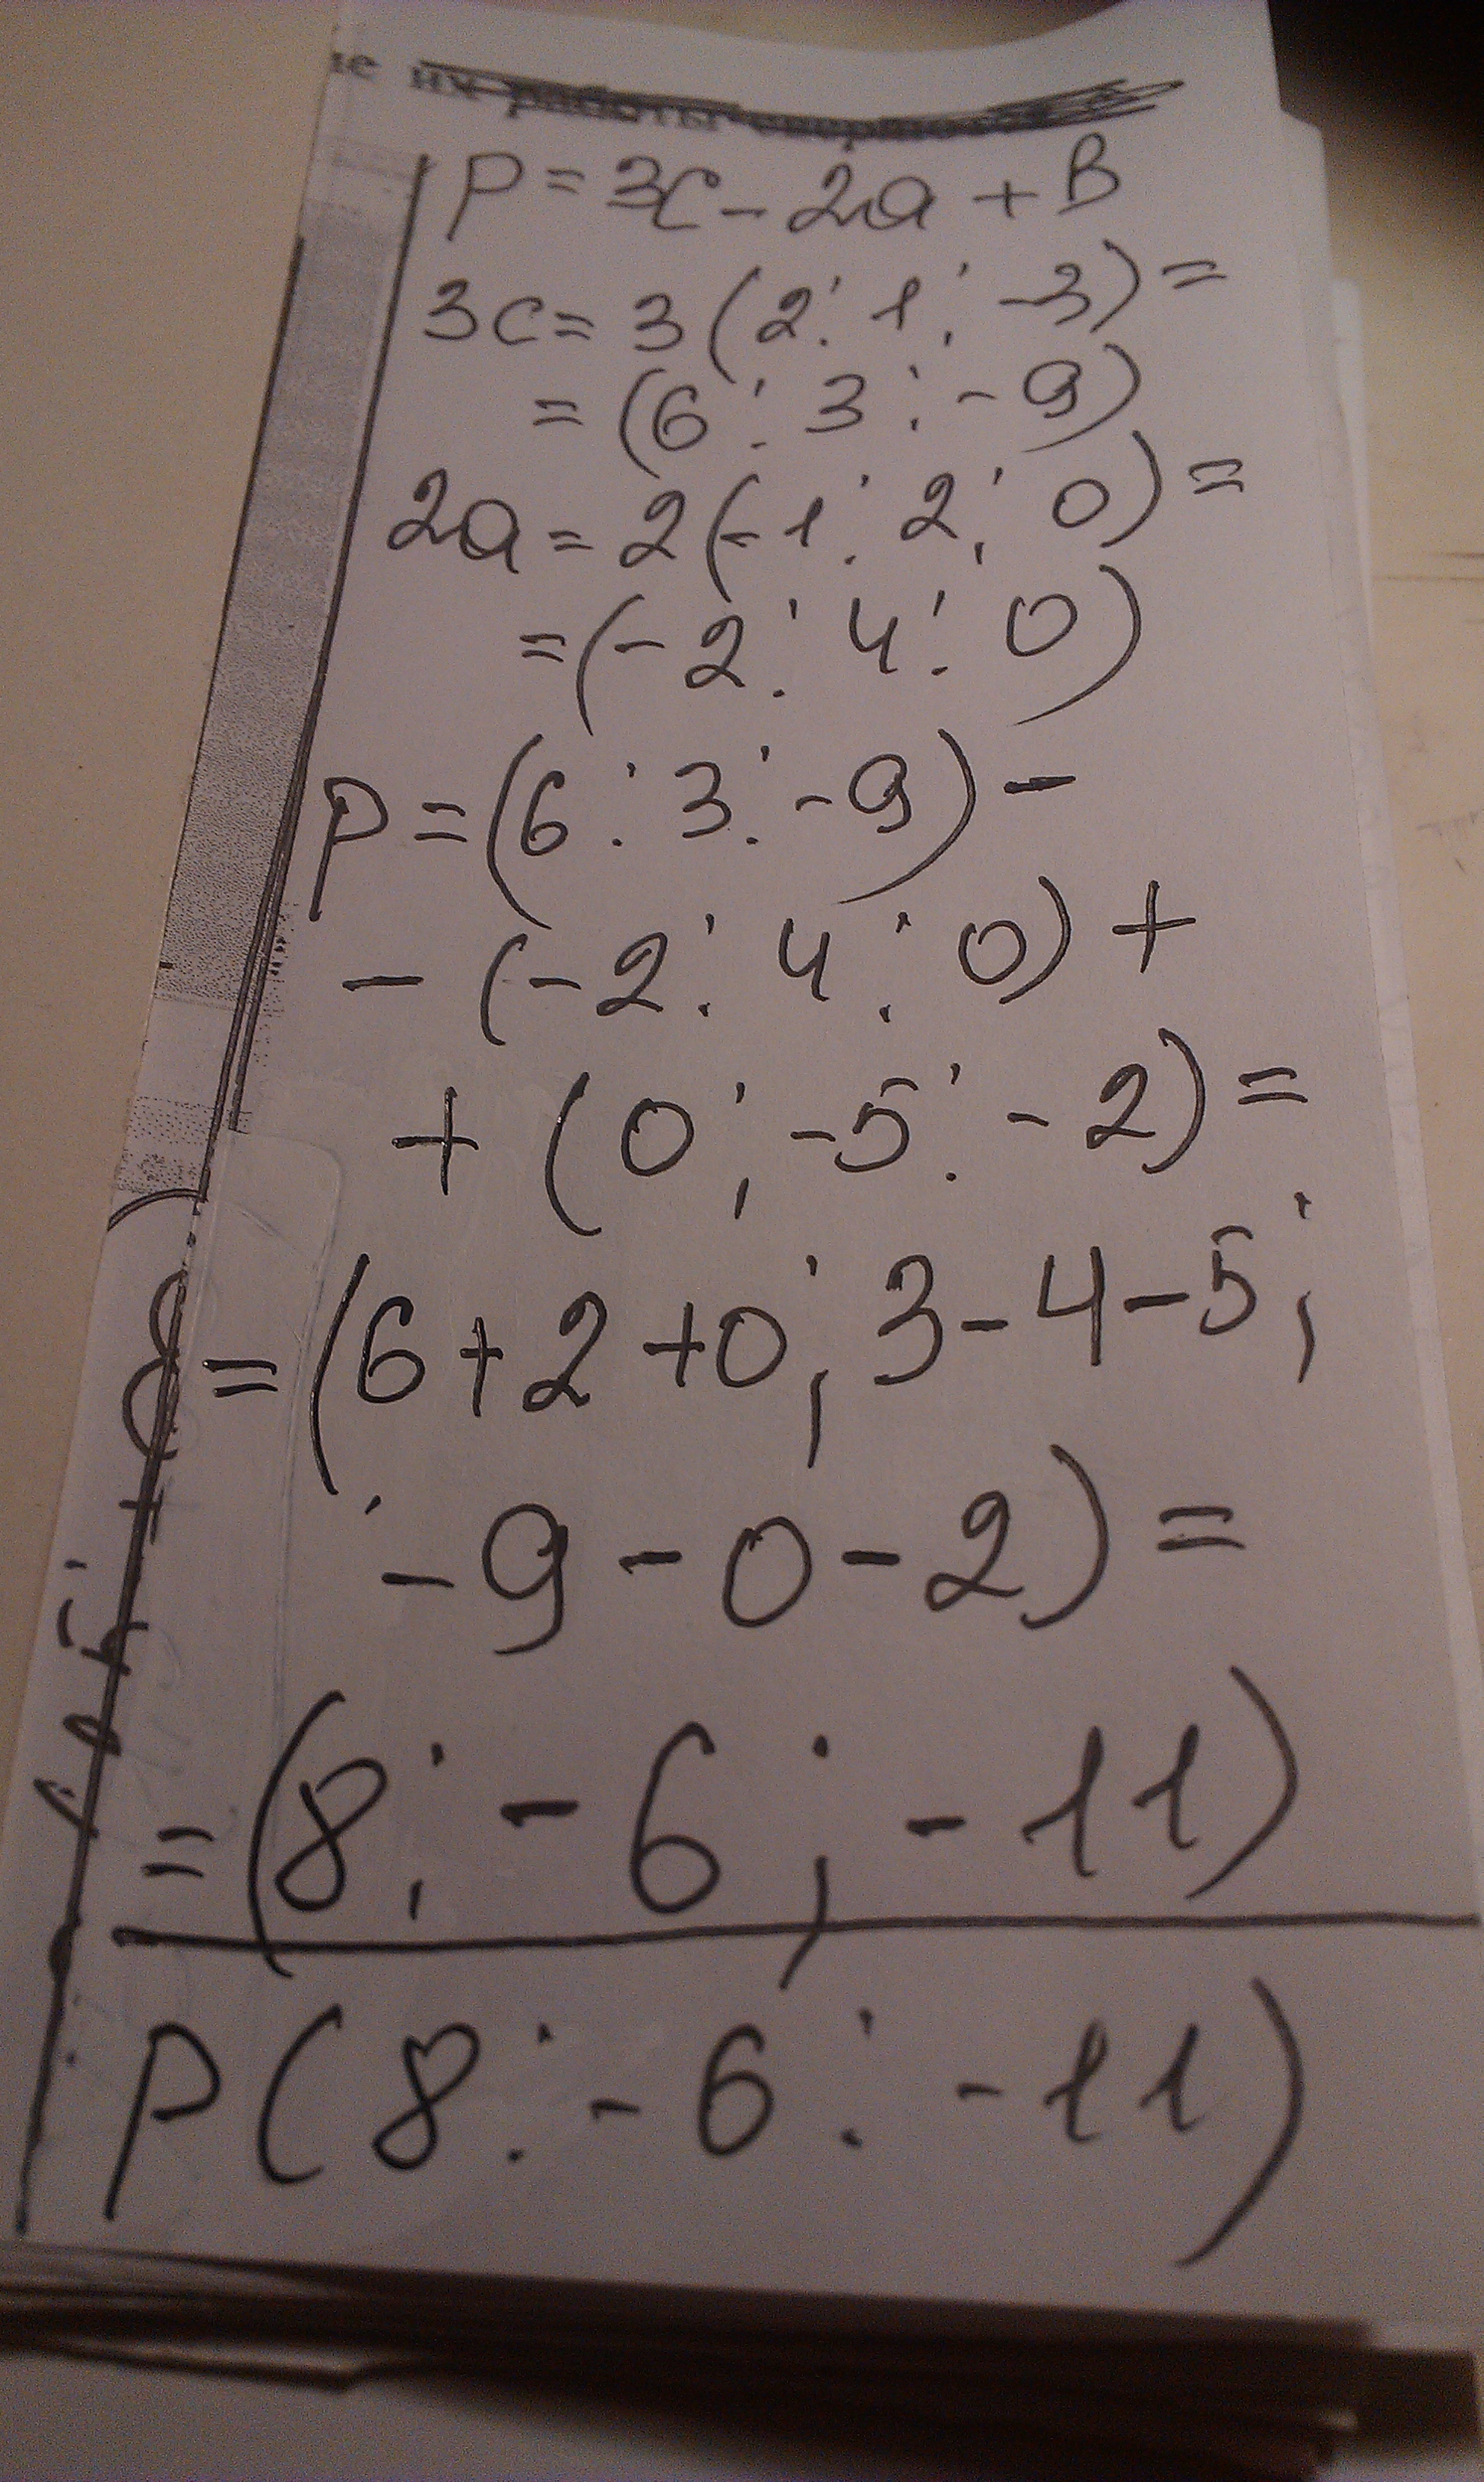 р = 3с - 2а + в
3с = 3 (2; 1; -3) =
= (6; 3; -9)
2а = 2 (-1; 2; 0) =
= (-2; 4; 0)
р = (6; 3; -9) -
- (-2; 4; 0) +
+ (0; -5; -2) =
= (6 + 2 + 0; 3 - 4 - 5;
; -9 - 0 - 2) =
= (8; -6; -11)
р (8; -6; -11)